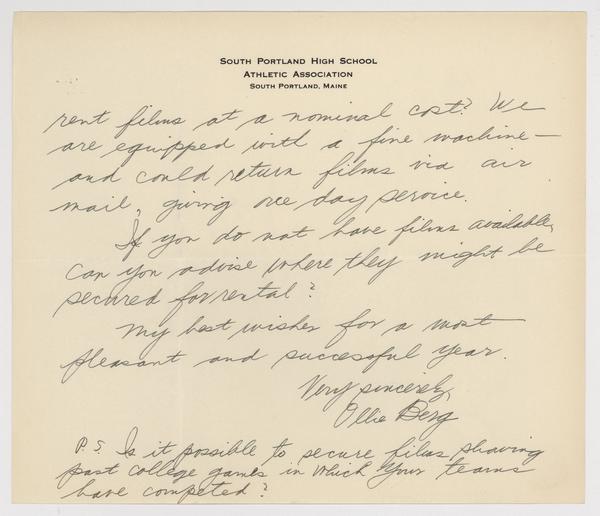 SOUTH PORTLAND HIGH SCHOOL
ATHLETIC ASSOCIATION
SOUTH PORTLAND, MAINE
rent films at a nominal cost? We
are equipped with a fine machine—
and could return films via air
mail, giving one day service.
If you do not have films available,
can you advise where they might be
secured for rental?
My best wishes for a most
pleasant and successful year.
Very sincerely,
Ollie Berg
P.S. Is it possible to secure films showing
past college games in which your teams
have competed?